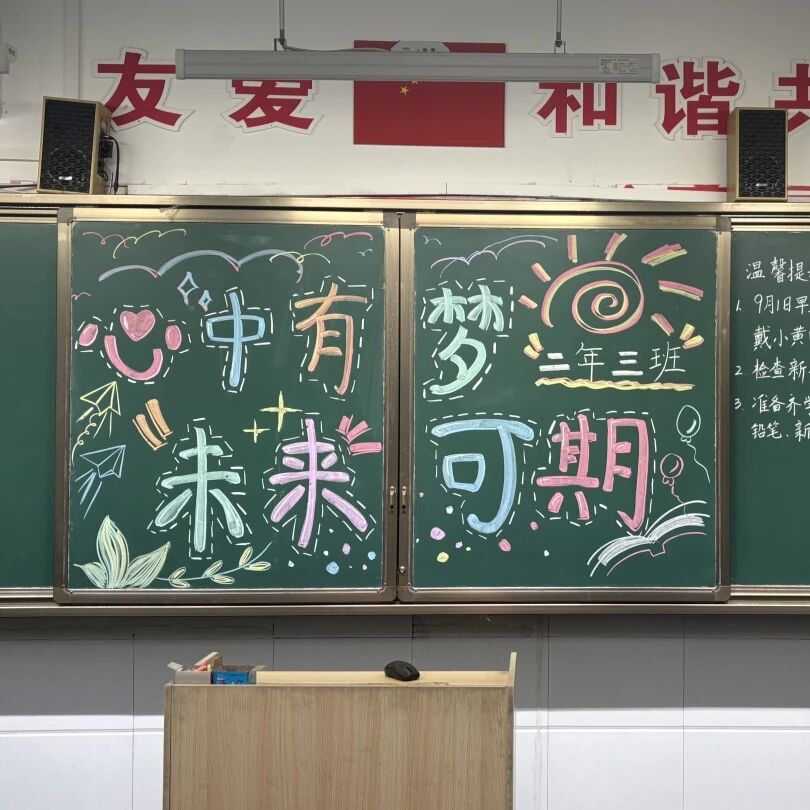 友爱 和谐共
心中有梦
二年三班
未来可期
温馨提
1. 9月1日早
戴小黄
2. 检查新
3. 准备齐
铅笔、新